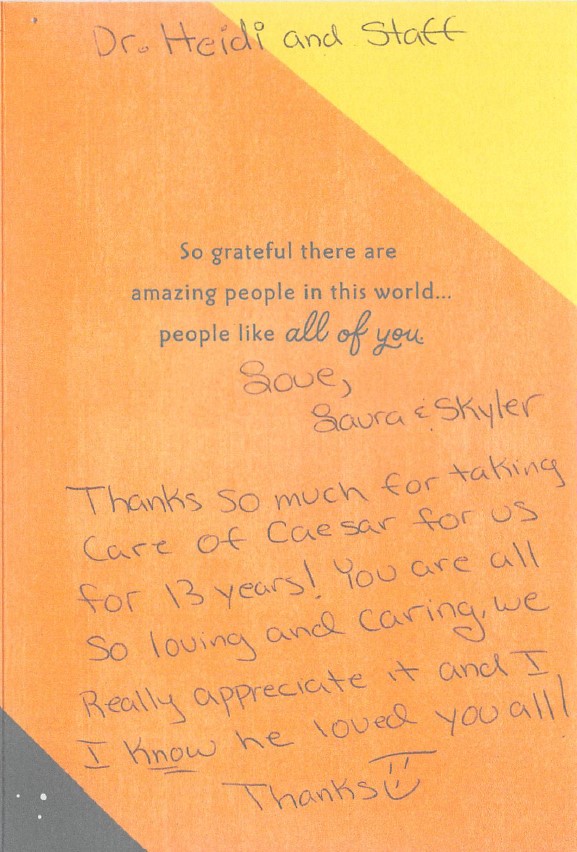 Dr. Heidi and Staff
So grateful there are
amazing people in this world...
people like all of you.
Love,
Laura & Skyler
Thanks so much for taking
Care of Caesar for us
for 13 years! You are all
So loving and caring, we
Really appreciate it and I
I know he loved you all!
Thanks